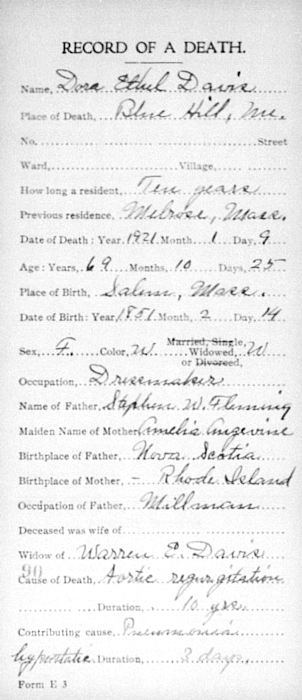 RECORD OF A DEATH.
Name, Dora Ethel Davis
Place of Death, Blue Hill, Me.
No. Street
Ward, Village,
How long a resident, Ten years
Previous residence, Melrose, Mass.
Date of Death: Year, 1921 Month, 1 Day, 9
Age: Years, 69 Months, 10 Days, 25
Place of Birth, Salem, Mass.
Date of Birth: Year, 1851 Month, 2 Day, 14
Married, Single,
Sex, F. Color, W Widowed, W
or Divorced,
Occupation, Dressmaker
Name of Father, Stephen W. Fleming
Maiden Name of Mother, Amelia Angevine
Birthplace of Father, Nova Scotia
Birthplace of Mother, - Rhode Island
Occupation of Father, Millman
Deceased was wife of
Widow of Warren E. Davis
90
Cause of Death, Aortic regurgitation
Duration, 10 yrs.
Contributing cause, Pneumonia
hypostatic Duration, 3 days.
Form E 3